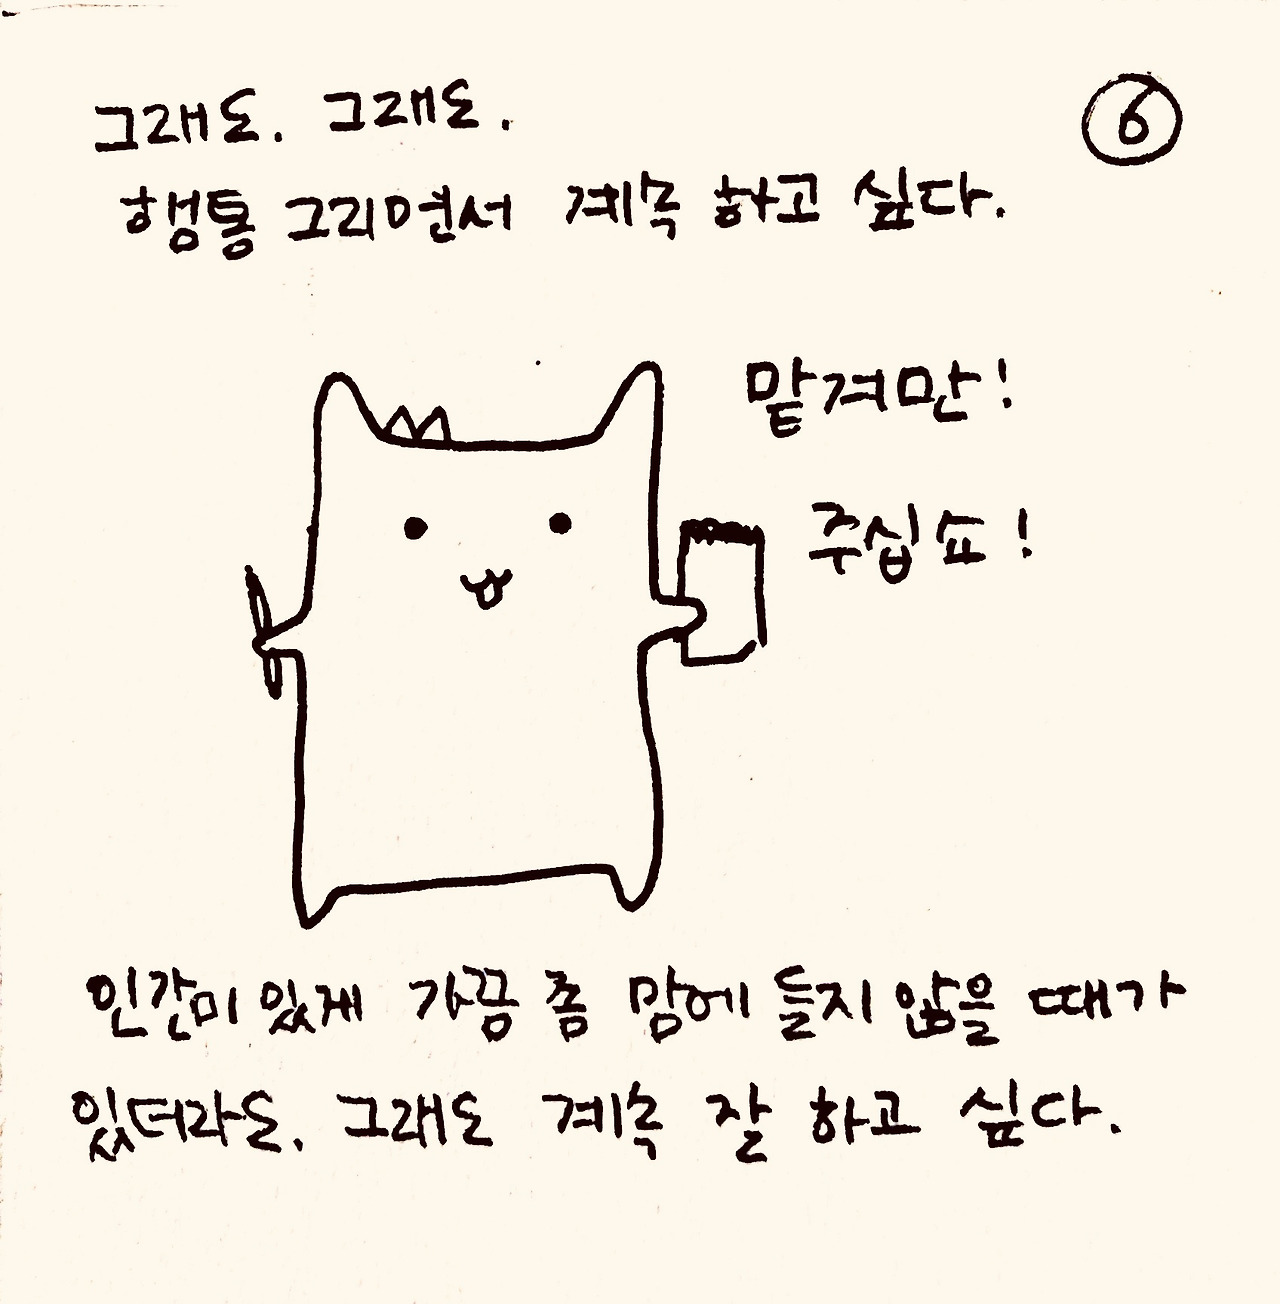 그래도. 그래도.
⑥
행통 그리면서 계속 하고 싶다.
맡겨만!
주십쇼!
인간미 있게 가끔 좀 맘에 들지 않을 때가
있더라도. 그래도 계속 잘 하고 싶다.